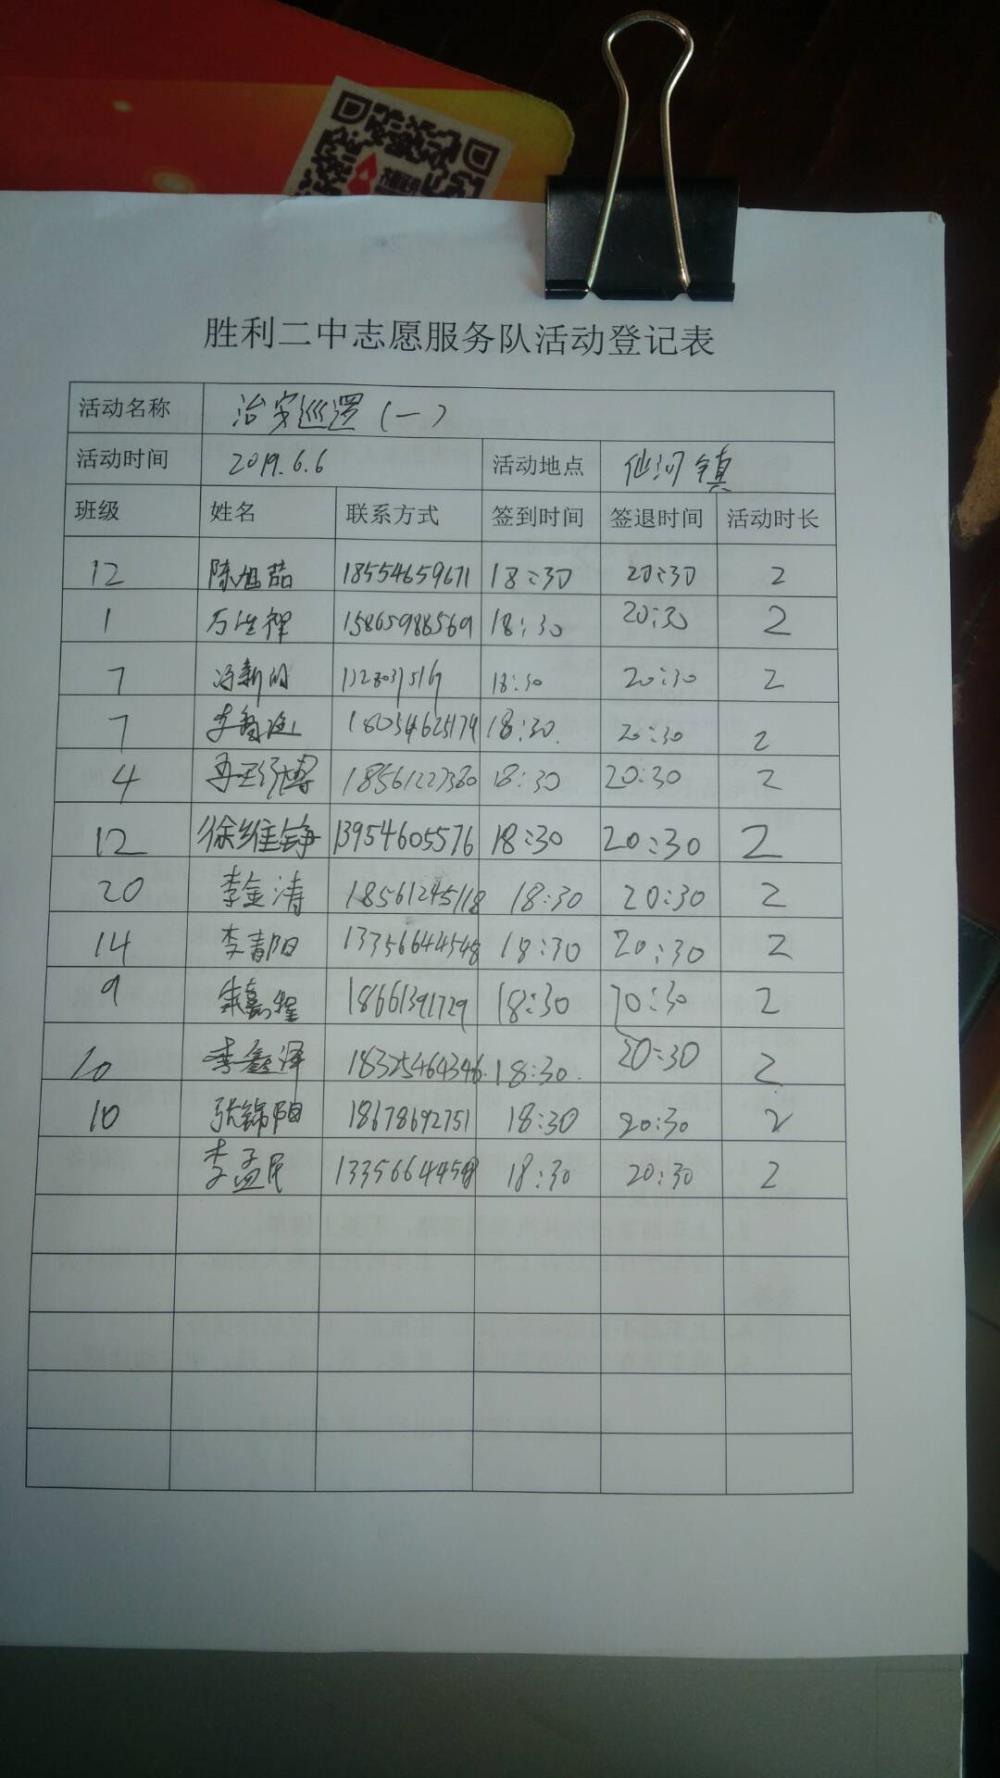 胜利二中志愿服务队活动登记表
活动名称 治安巡逻(一)
活动时间 2019.6.6 活动地点 仙河镇
班级 姓名 联系方式 签到时间 签退时间 活动时长
12 陈旭喆 18554659671 18:30 20:30 2
1 15865988569 18:30 20:30 2
7 18:30 20:30 2
7 李鑫 18054625179 18:30 20:30 2
4 18561227380 18:30 20:30 2
12 徐维铮 13954605576 18:30 20:30 2
20 李金涛 18561245118 18:30 20:30 2
14 李青阳 13356644548 18:30 20:30 2
9 18661391729 18:30 20:30 2
10 李鑫泽 18325464346 18:30 20:30 2
10 张锦阳 18678692751 18:30 20:30 2
李孟民 18:30 20:30 2